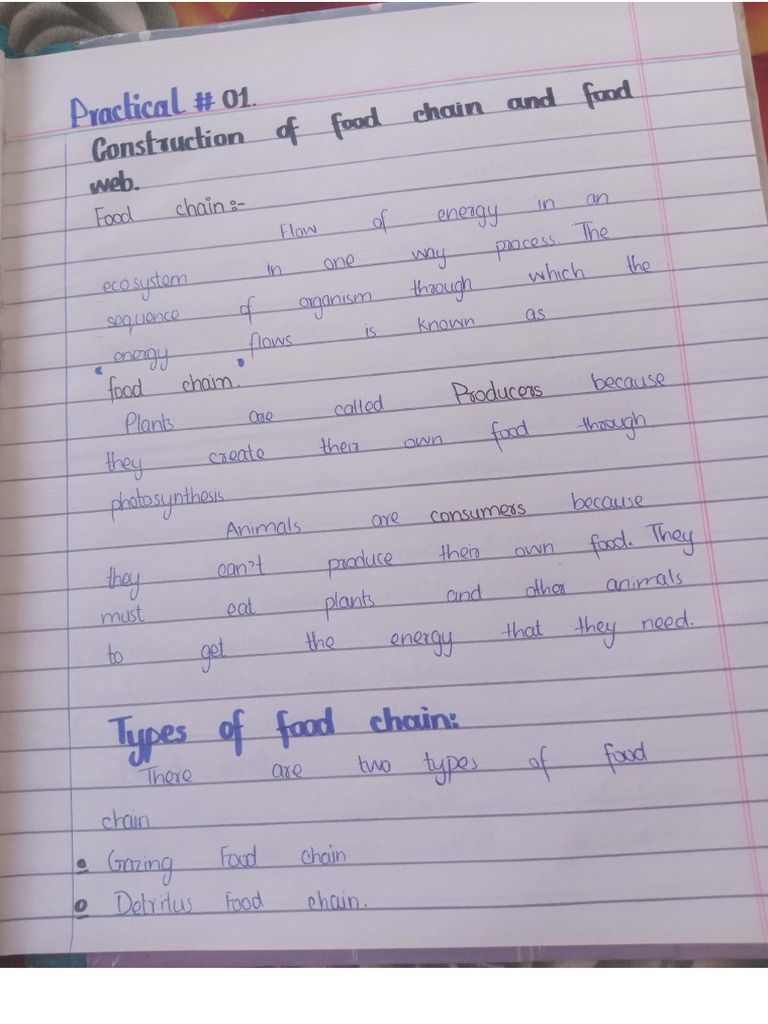 Practical # 01.
Construction of food chain and food
web.
Food chain:-
Flow of energy in an
ecosystem in one way process. The
sequence of organism through which the
energy flows is known as
"food chain."
Plants are called Producers because
they create their own food through
photosynthesis
Animals are consumers because
they can't produce their own food. They
must eat plants and other animals
to get the energy that they need.
Types of food chain:
There are two types of food
chain
• Grazing Food chain
• Detritus Food chain.